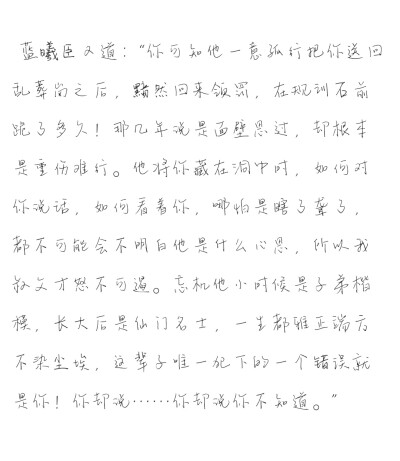 蓝曦臣又道：“你可知他一意孤行把你送回
乱葬岗之后，黯然回来领罚，在规训石前
跪了多久！那几年说是面壁思过，却根本
是重伤难行。他将你藏在洞中时，如何对
你说话，如何看着你，哪怕是瞎了聋了，
都不可能会不明白他是什么心思，所以我
叔父才怒不可遏。忘机他小时候是子弟楷
模，长大后是仙门名士，一生都雅正端方
不染尘埃，这辈子唯一犯下的一个错误就
是你！你却说……你却说你不知道。”